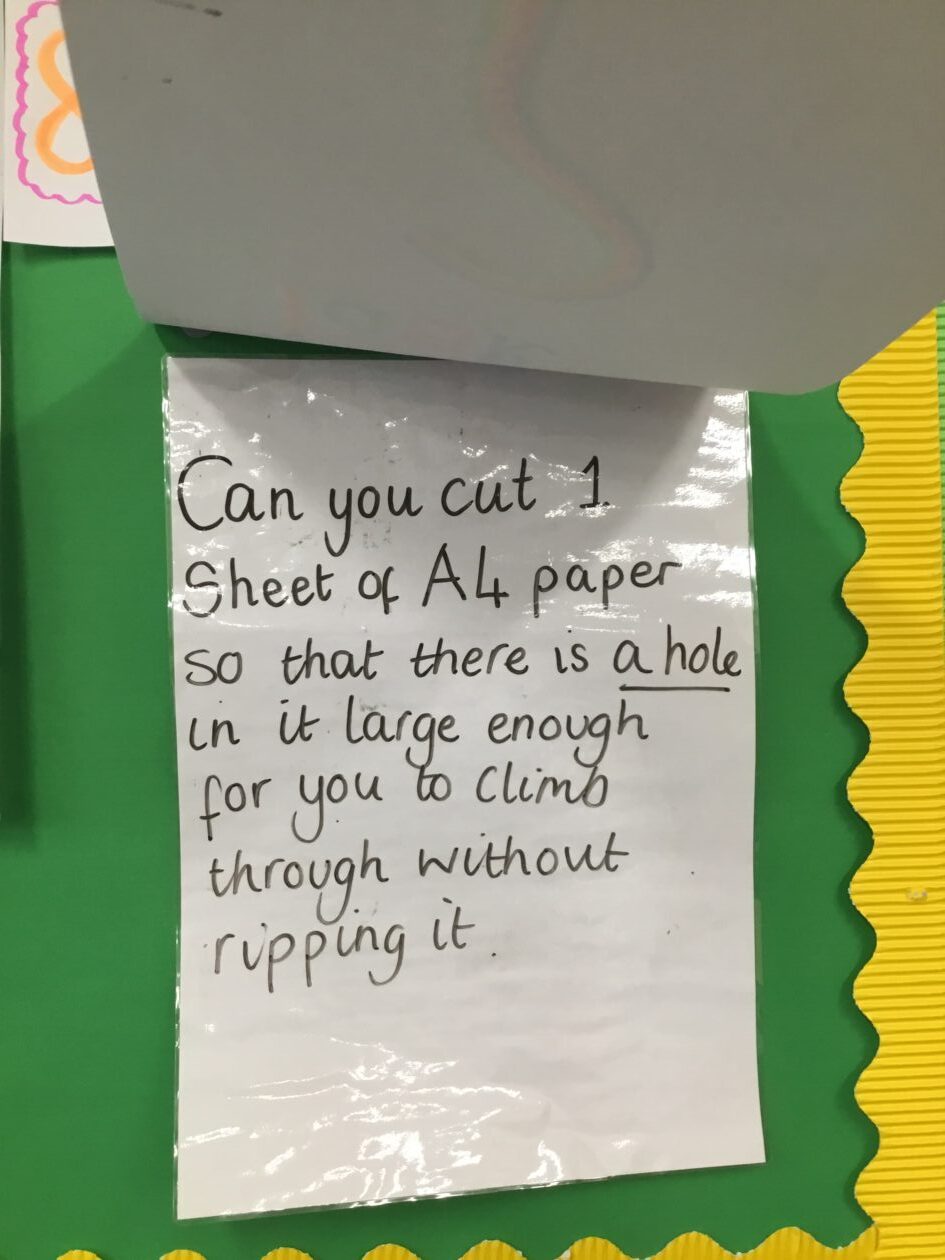 Can you cut 1
Sheet of A4 paper
so that there is a hole
in it large enough
for you to climb
through without
ripping it.
8